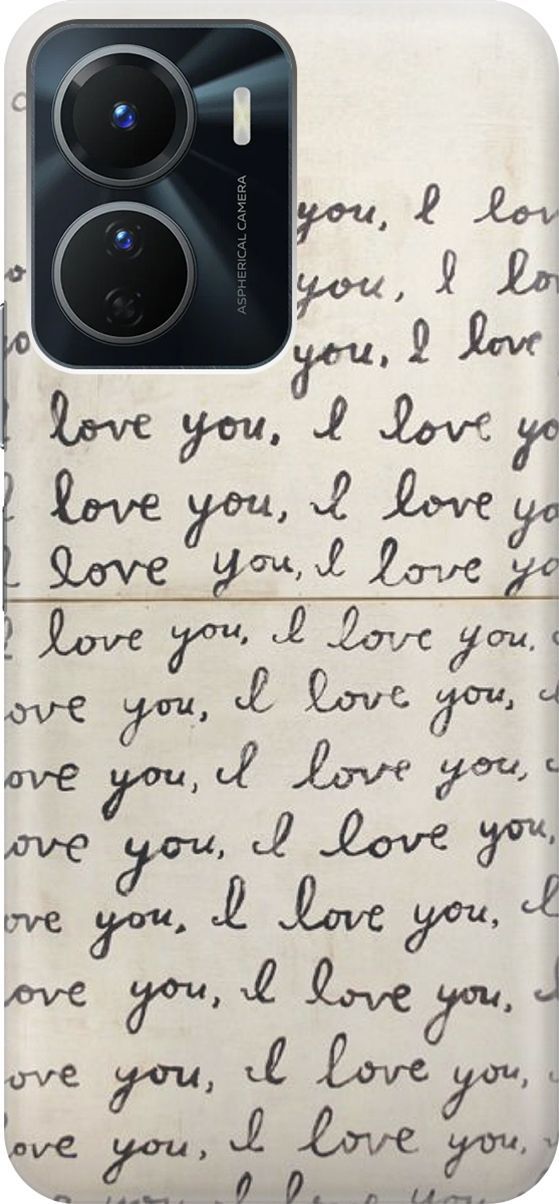 ASPHERICAL CAMERA
you, I lov
you, I lo
you, I love
I love you, I love yo
I love you, I love yo
I love you, I love yo
I love you, I love you,
ove you, I love you,
ove you, I love you,
ove you, I love you,
ove you, I love you, I
ove you, I love you,
ove you, I love you,
ove you, I love you,